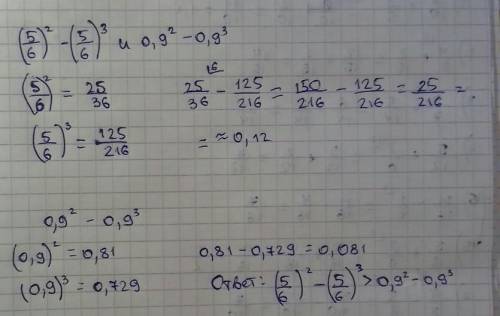 (5/6)² - (5/6)³ и 0,9² - 0,9³
(5/6)² = 25/36
25/36 ⌊6 - 125/216 = 150/216 - 125/216 = 25/216 =
(5/6)³ = 125/216
= ≈ 0,12
0,9² - 0,9³
(0,9)² = 0,81
0,81 - 0,729 = 0,081
(0,9)³ = 0,729
Ответ: (5/6)² - (5/6)³ > 0,9² - 0,9³